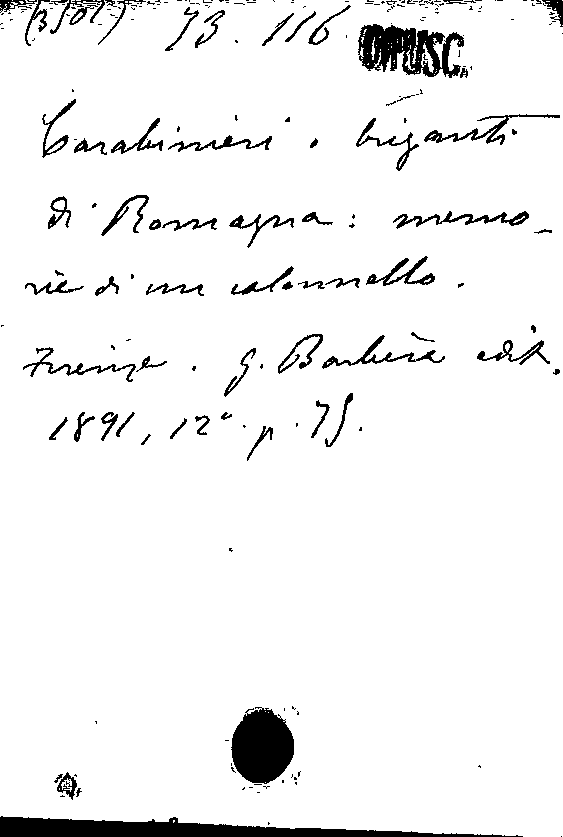 (3501) 73. 116 OPUSC.
Carabinieri e briganti
di Romagna: memo-
rie di un colonnello.
Firenze. G. Barbèra edit.
1891, 12° p. 75.